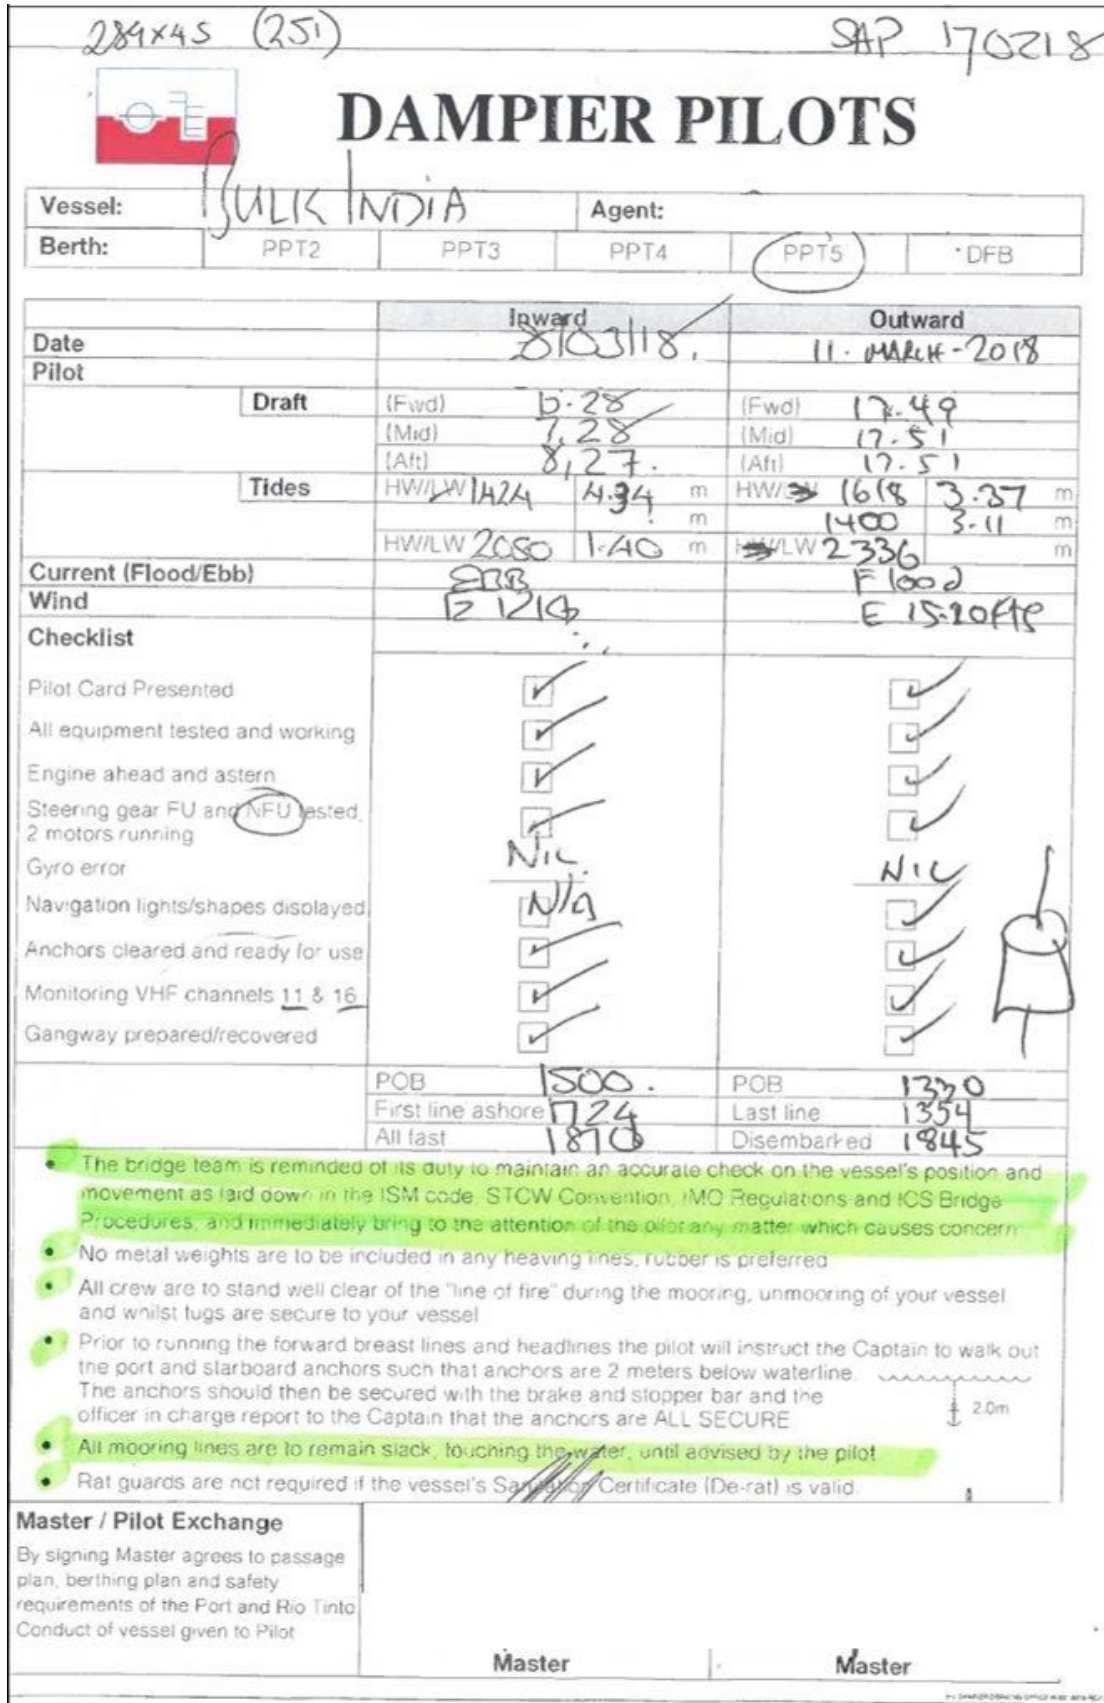 289x45 (251) SAP 170218
DAMPIER PILOTS
Vessel: BULK INDIA Agent:
Berth: PPT2 PPT3 PPT4 PPT5 DFB
Inward Outward
Date 8/03/18. 11. MARCH-2018
Pilot
Draft (Fwd) (Fwd) 17.49
(Mid) 7.28 (Mid) 17.51
(Aft) 8,27. (Aft) 17.51
Tides HW/LW 1424 4.34 m HW/ 1618 3.37 m
m 1400 3.11 m
HW/LW 2050 1.40 m /LW 2336 m
Current (Flood/Ebb) EBB Flood
Wind E E 15-20
Checklist
Pilot Card Presented
All equipment tested and working
Engine ahead and astern
Steering gear FU and NFU tested,
2 motors running
Gyro error NIL NIL
Navigation lights/shapes displayed N/A
Anchors cleared and ready for use
Monitoring VHF channels 11 & 16
Gangway prepared/recovered
POB 1500. POB 1330
First line ashore 1724 Last line 1354
All fast Disembarked 1845
• The bridge team is reminded of its duty to maintain an accurate check on the vessel's position and
movement as laid down in the ISM code, STCW Convention, IMO Regulations and ICS Bridge
Procedures, and immediately bring to the attention of the pilot any matter which causes concern
• No metal weights are to be included in any heaving lines, rubber is preferred
• All crew are to stand well clear of the "line of fire" during the mooring, unmooring of your vessel
and whilst tugs are secure to your vessel
• Prior to running the forward breast lines and headlines the pilot will instruct the Captain to walk out
the port and starboard anchors such that anchors are 2 meters below waterline.
The anchors should then be secured with the brake and stopper bar and the
officer in charge report to the Captain that the anchors are ALL SECURE
2.0m
• All mooring lines are to remain slack, touching the water, until advised by the pilot
• Rat guards are not required if the vessel's Sanitation Certificate (De-rat) is valid.
Master / Pilot Exchange
By signing Master agrees to passage
plan, berthing plan and safety
requirements of the Port and Rio Tinto
Conduct of vessel given to Pilot
Master Master